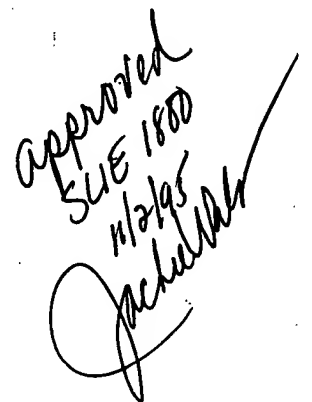 approved
SLIE 1800
11/2/95